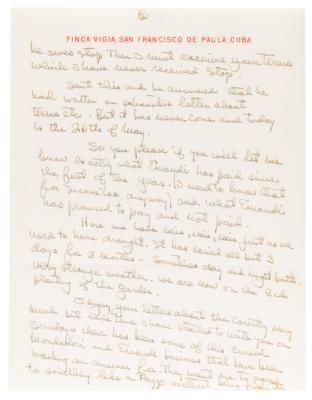 2
FINCA VIGIA, SAN FRANCISCO DE PAULA, CUBA
he owes stop. Then I must examine your Terms
which I have never received stop.
Sent this and he answered that he
had written an exhaustive letter about
terms etc. But it has never come and today
is the 26th of May.
So you please if you will let me
know exactly what Einaudi has paid since
the first of the year. I need to know that
for Income tax anyway, and what Einaudi
has promised to pay and not paid.
Here we have rain, rain, rain just as we
used to have drought. It has rained all but 3
days for 3 months - sometimes day and night both.
Very strange weather. We are now on the 3rd
planting of the garden.
I enjoy your letters about the country very
much but each time I have started to write you on
Sundays there has been some of this current
Mondadori and Einaudi business that have been
waiting an answer for. They want me to agree
to something like a Prize without being